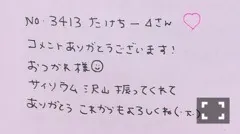 No. 3413 たけちームさん ♡
コメントありがとうございます!
おつかれ様☺
サイリウム沢山振ってくれて
ありがとう これからもよろしくね(･ｪ･)